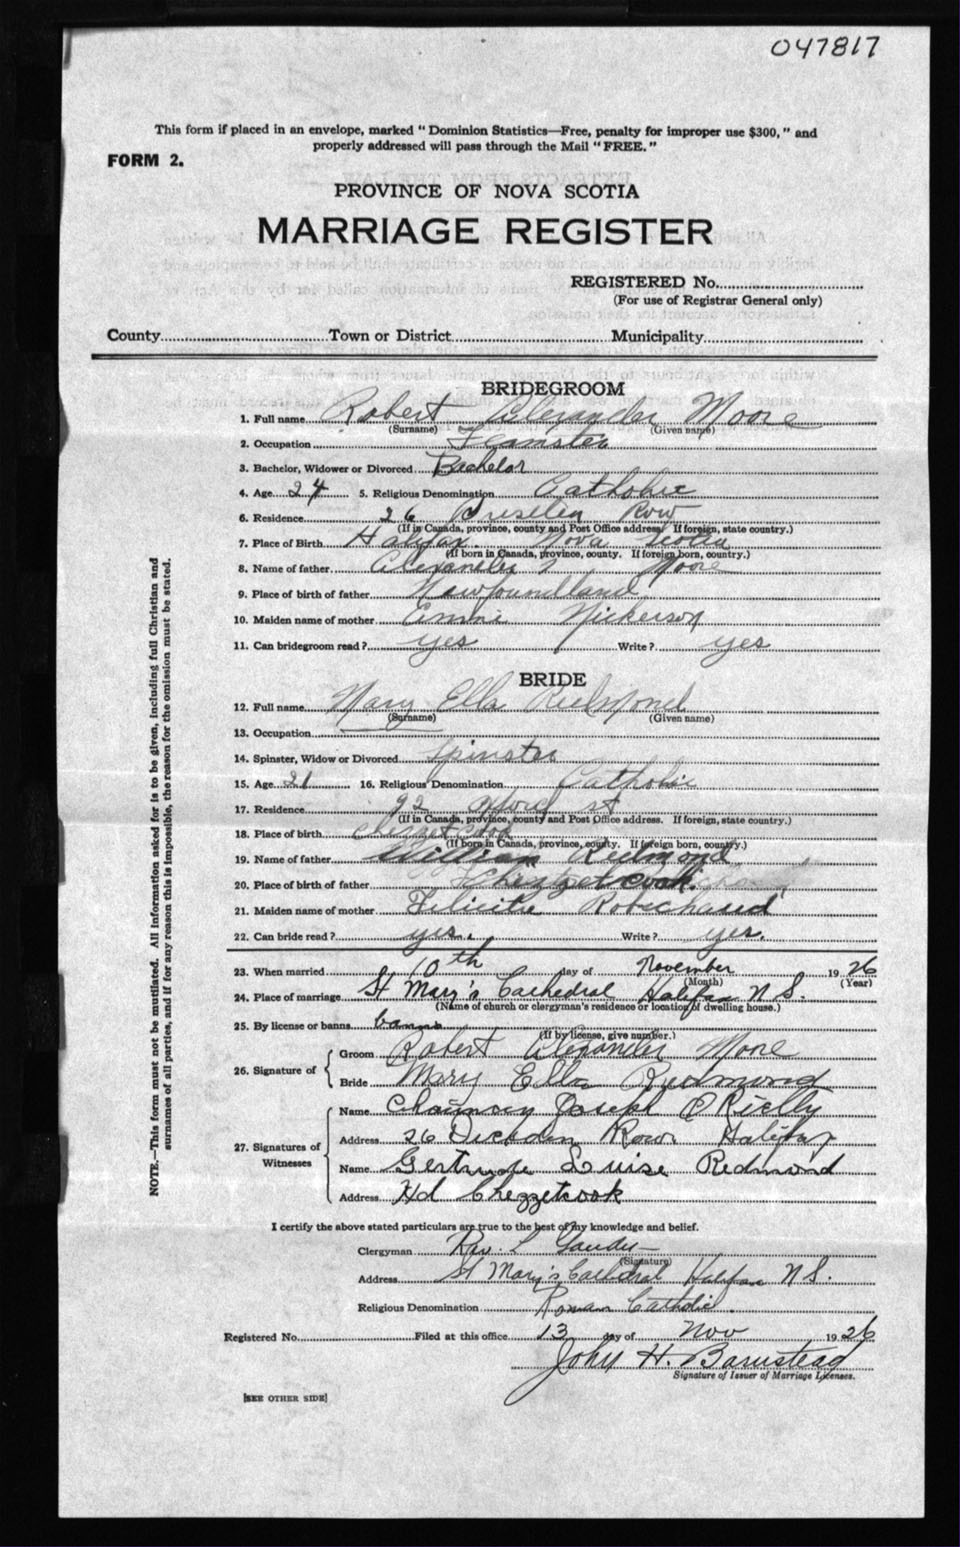 047817
This form if placed in an envelope, marked "Dominion Statistics—Free, penalty for improper use $300," and
properly addressed will pass through the Mail "FREE."
FORM 2.
PROVINCE OF NOVA SCOTIA
MARRIAGE REGISTER
REGISTERED No.
(For use of Registrar General only)
County Town or District Municipality
BRIDEGROOM
1. Full name Robert Alexander Moore
(Surname) (Given name)
2. Occupation Teamster
3. Bachelor, Widower or Divorced Bachelor
4. Age 24 5. Religious Denomination Catholic
6. Residence 26 Row
(If in Canada, province, county and Post Office address. If foreign, state country.)
7. Place of Birth Halifax Nova Scotia
(If born in Canada, province, county. If foreign born, country.)
8. Name of father Alexander Moore
9. Place of birth of father Newfoundland
10. Maiden name of mother Nickerson
11. Can bridegroom read? yes Write? yes
BRIDE
12. Full name Mary Ella Redmond
(Surname) (Given name)
13. Occupation
14. Spinster, Widow or Divorced Spinster
15. Age 21 16. Religious Denomination Catholic
17. Residence 92 st
(If in Canada, province, county and Post Office address. If foreign, state country.)
18. Place of birth Chezzetcook
(If born in Canada, province, county. If foreign born, country.)
19. Name of father William Redmond
20. Place of birth of father Chezzetcook.
21. Maiden name of mother Robichaud
22. Can bride read? yes. Write? yes.
23. When married 10th day of November 1926
(Month) (Year)
24. Place of marriage St Mary's Cathedral Halifax N S.
(Name of church or clergyman's residence or location of dwelling house.)
25. By license or banns banns
(If by license, give number.)
26. Signature of
Groom Robert Alexander Moore
Bride Mary Ella Redmond
27. Signatures of Witnesses
Name Chauncey Joseph O Rielly
Address 26 Row Halifax
Name Gertrude Luise Redmond
Address Hd Chezzetcook
I certify the above stated particulars are true to the best of my knowledge and belief.
Clergyman Rev. L
(Signature)
Address St Mary's Cathedral Halifax N S.
Religious Denomination Roman Catholic.
Registered No. Filed at this office 13 day of Nov 1926
John H. Barnstead
Signature of Issuer of Marriage Licenses.
[SEE OTHER SIDE]
NOTE.—This form must not be mutilated. All information asked for is to be given, including full Christian and
surnames of all parties, and if for any reason this is impossible, the reason for the omission must be stated.